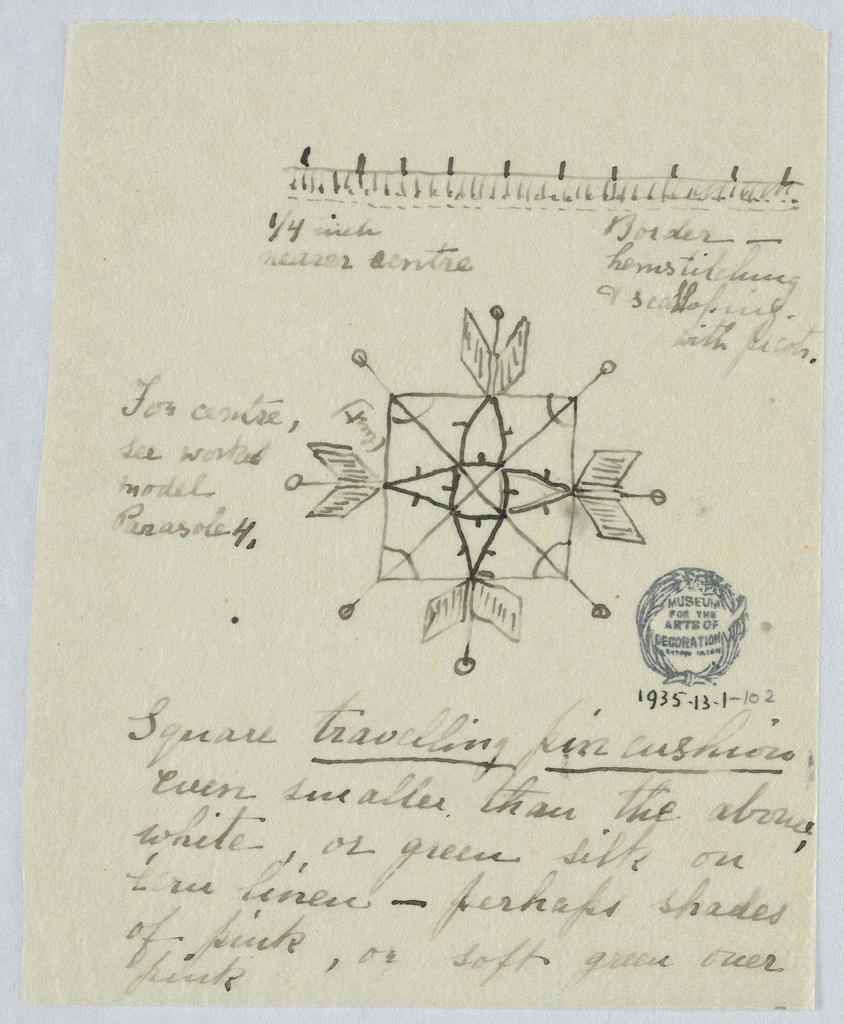 1/4 inch
nearer centre
Border —
hemstitching
& scalloping.
with picots.
For centre,
see worked
model
Perasole 4.
MUSEUM
FOR THE
ARTS OF
DECORATION
COOPER UNION
1935-13-1-102
Square travelling pin cushion
even smaller than the above,
white, or green silk on
ecru linen — perhaps shades
of pink, or soft green over
pink